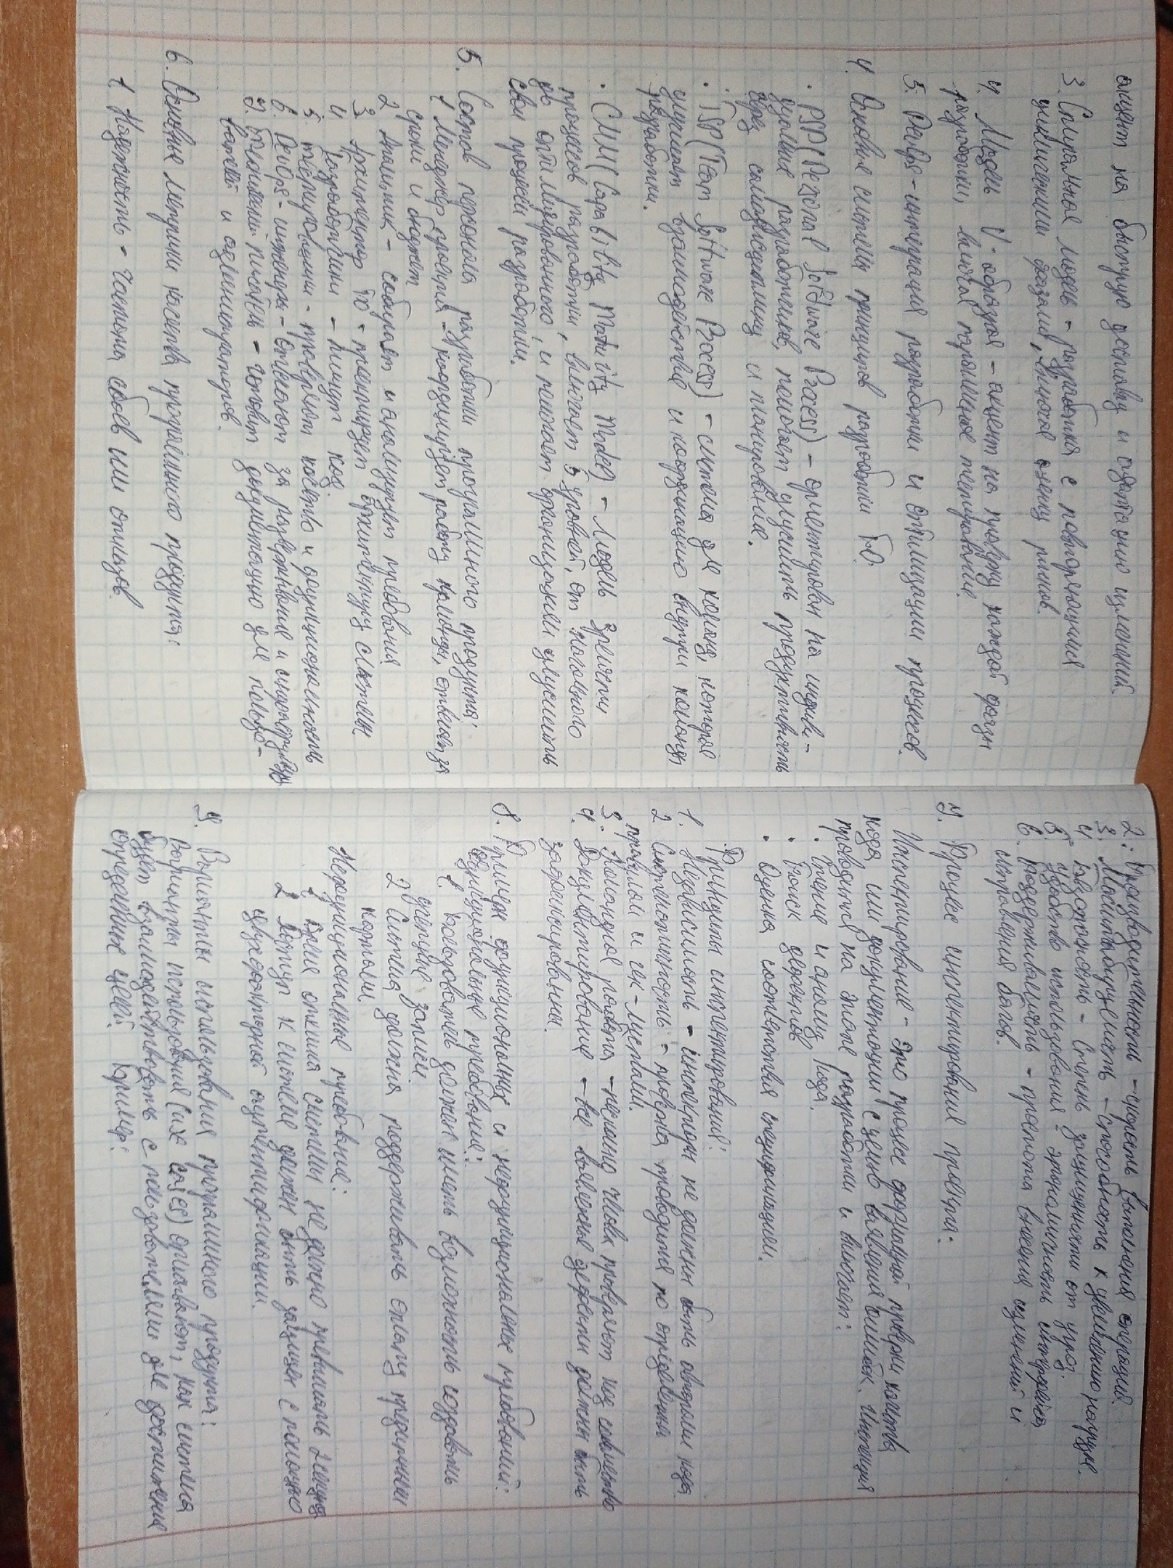 акцент на быструю доставку и адаптацию изменений.
3 Спиральная модель - разработка с повторяющимися
циклическими фазами, анализ и оценку рисков
4. Модель V-образная - акцент на проверку каждой фазы
разработки, включая тщательное тестирование
5. Ревью - интеграция разработки и оптимизации процессов
4 Основные принципов разработки ПО
• PSP (Personal Software Process) - ориентирован на индиви-
дуальных разработчиков, помогает улучшить продуктивность
через самодисциплину и планирование.
• TSP (Team Software Process) - система для команд, которая
улучшает взаимодействие и координацию внутри команды
разработки.
• CMM (Capability Maturity Model) - модель зрелости
процессов разработки, включает 5 уровней, от начального
до оптимизированного, и помогает организациям улучшить
свои процессы разработки.
5. Состав проекта разработки программного продукта:
1 Менеджер проекта - координирует работу команды, отвечает за
сроки и бюджет
2 Аналитик - собирает и анализирует требования
3 Архитектор ПО - проектирует архитектуру системы
4 Разработчики - пишут код
5 Тестировщики - проверяют качество и функциональность
6 DevOps-инженер - отвечает за развертывание и инфраструктуру
7 Технический писатель - готовит документацию для пользо-
вателей и администраторов.
6. Основные метрики качества программного продукта:
1 Надежность - частота сбоев или отказов
2. Производительность - скорость выполнения операций.
3. Масштабируемость - способность к увеличению нагрузки.
4 Безопасность - степень защищенности от угроз
5 Удобство использования: эргономичность интерфейса
6 Поддерживаемость - простота внесения изменений и
исправления багов
7. Процесс инспектирования проекта.
Инспектирование - это процесс формальной проверки качества
кода или документации с целью выявления ошибок. Инспекция
проводится на этапе разработки и включает:
• Чтение и анализ кода.
• Поиск дефектов
• Оценка соответствия требованиям.
Принципы инспектирования:
1. Независимость - инспекторы не должны быть авторами кода
2 Систематичность - проверка проводится по определённым
процедурам и чек-листам.
3. Командная работа - несколько человек проверяют код совместно
4. Документирование - все выявленные дефекты должны быть
задокументированы.
8. Пример функциональных и нефункциональных требований:
Функциональные требования:
1. Пользователь должен иметь возможность создавать
учетную запись
2 Система должна поддерживать оплату кредитными
картами.
Нефункциональные требования:
1 Время отклика системы не должно превышать 2 секунд
2 Доступ к системе должен быть защищён с помощью
двухфакторной аутентификации.
9. Варианты использования программного продукта:
Варианты использования (use cases) описывают, как система
будет взаимодействовать с пользователями для достижения
определённых целей. Пример: